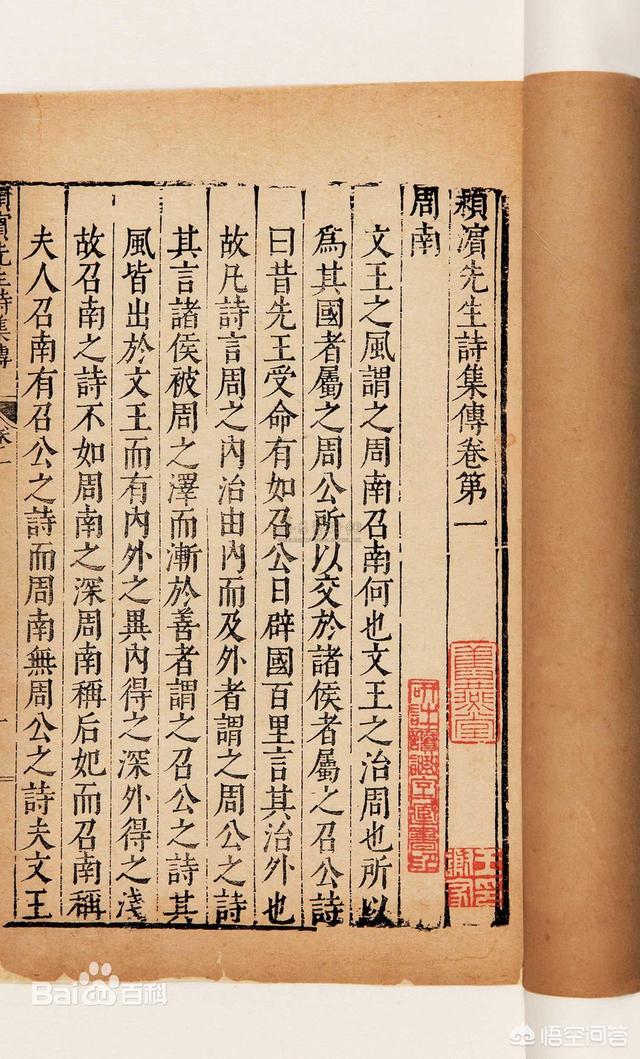 潁濱先生詩集傳卷第一
周南
文王之風謂之周南召南何也文王之治周也所以
為其國者屬之周公所以交於諸侯者屬之召公詩
曰昔先王受命有如召公日辟國百里言其治外也
故凡詩言周之內治由內而及外者謂之周公之詩
其言諸侯被周之澤而漸於善者謂之召公之詩其
風皆出於文王而有內外之異內得之深外得之淺
故召南之詩不如周南之深周南稱后妃而召南稱
夫人召南有召公之詩而周南無周公之詩夫文王
潁濱先生詩集傳
卷一
一
Baidu百科
悟空问答